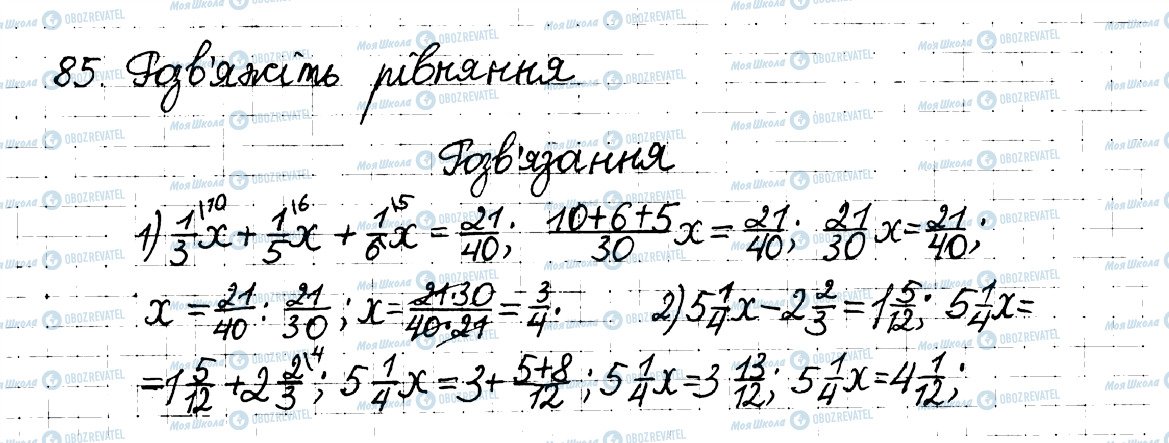 85. Розв'яжіть рівняння
Розв'язання
1) 1/3\10 x + 1/5\6 x + 1/6\5 x = 21/40; 10+6+5/30 x = 21/40; 21/30 x = 21/40;
x = 21/40 : 21/30; x = 21·30/40·21 = 3/4. 2) 5 1/4 x − 2 2/3 = 1 5/12; 5 1/4 x =
= 1 5/12 + 2 2/3\4; 5 1/4 x = 3 + 5+8/12; 5 1/4 x = 3 13/12; 5 1/4 x = 4 1/12;